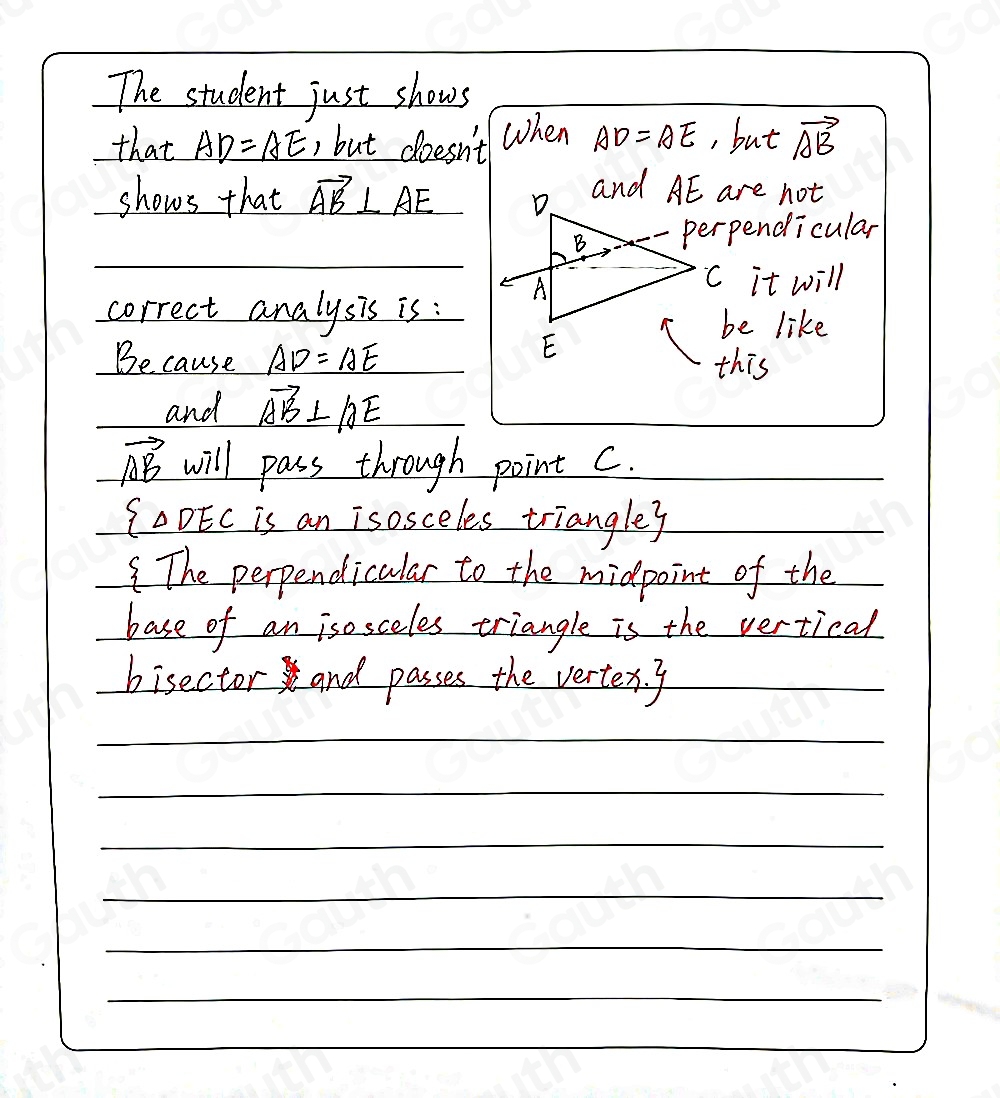 The student just shows
that AD=AE, but doesn't
shows that AB⊥AE
When AD=AE, but AB
and AE are not
perpendicular
it will
be like
this
D
B
A
C
E
correct analysis is:
Because AD=AE
and AB⊥AE
AB will pass through point C.
{△DEC is an isosceles triangle}
{The perpendicular to the midpoint of the
base of an isosceles triangle is the vertical
bisector and passes the vertex.}
Gauth